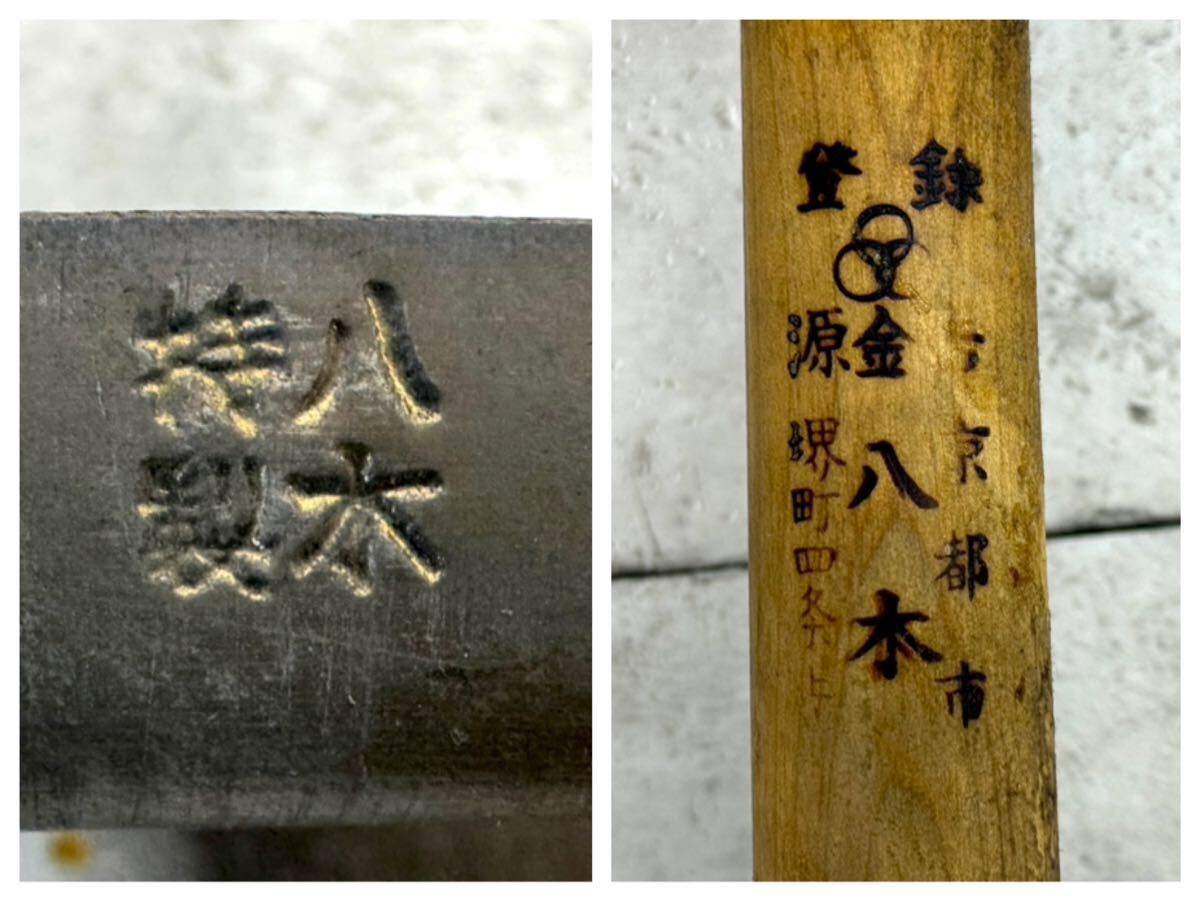 八木
特製
登録
金八木
源
京都市
堺町四条下上